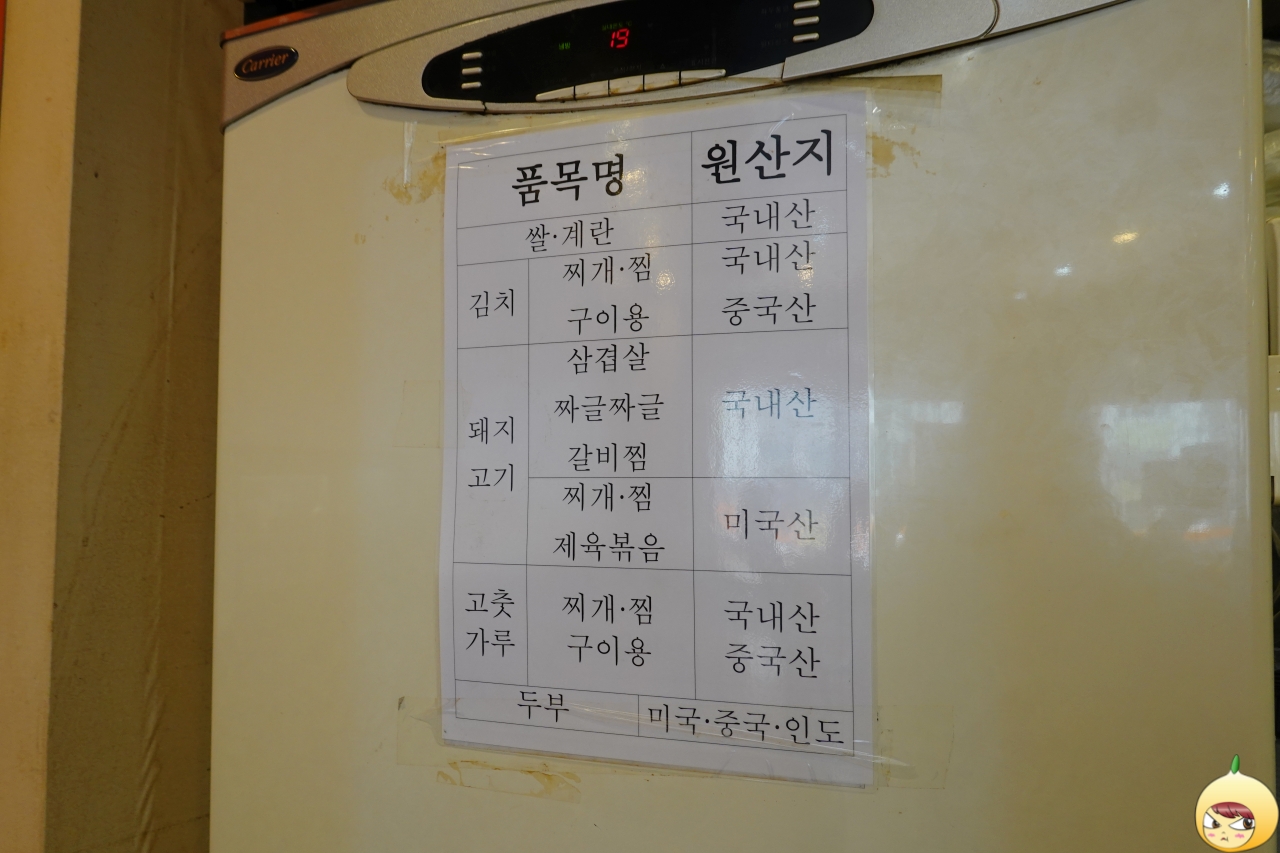 Carrier
19
품목명 원산지
쌀·계란 국내산
김치 찌개·찜 국내산
구이용 중국산
돼지 고기 삼겹살 짜글짜글 갈비찜 국내산
찌개·찜 제육볶음 미국산
고춧 가루 찌개·찜 국내산
구이용 중국산
두부 미국·중국·인도